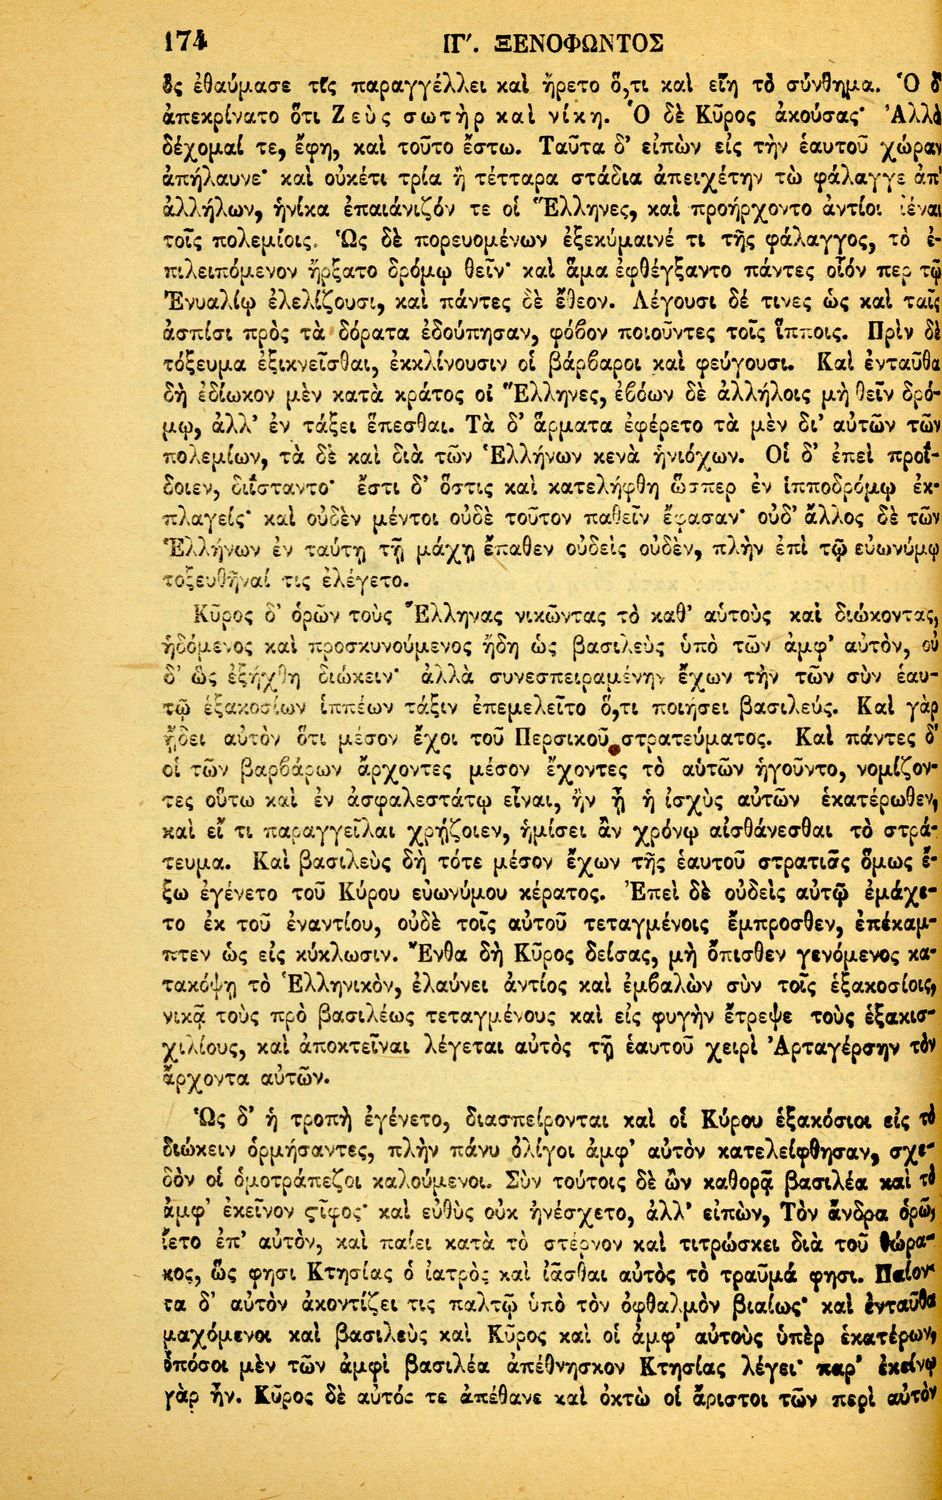 174 ΙΓ'. ΞΕΝΟΦΩΝΤΟΣ
ὃς ἐθαύμασε τίς παραγγέλλει καὶ ἤρετο ὅ,τι καὶ εἴη τὸ σύνθημα. Ὁ δ
ἀπεκρίνατο ὅτι Ζεὺς σωτὴρ καὶ νίκη. Ὁ δὲ Κῦρος ἀκούσας· Ἀλλὰ
δέχομαί τε, ἔφη, καὶ τοῦτο ἔστω. Ταῦτα δ' εἰπὼν εἰς τὴν ἑαυτοῦ χώραν
ἀπήλαυνε· καὶ οὐκέτι τρία ἢ τέτταρα στάδια ἀπειχέτην τὼ φάλαγγε ἀπ'
ἀλλήλων, ἡνίκα ἐπαιάνιζόν τε οἱ Ἕλληνες, καὶ προήρχοντο ἀντίοι ἰέναι
τοῖς πολεμίοις. Ὡς δὲ πορευομένων ἐξεκύμαινέ τι τῆς φάλαγγος, τὸ ἐ-
πιλειπόμενον ἤρξατο δρόμῳ θεῖν· καὶ ἅμα ἐφθέγξαντο πάντες οἷόν περ τῷ
Ἐνυαλίῳ ἐλελίζουσι, καὶ πάντες δὲ ἔθεον. Λέγουσι δέ τινες ὡς καὶ ταῖς
ἀσπίσι πρὸς τὰ δόρατα ἐδούπησαν, φόβον ποιοῦντες τοῖς ἵπποις. Πρὶν δὲ
τόξευμα ἐξικνεῖσθαι, ἐκκλίνουσιν οἱ βάρβαροι καὶ φεύγουσι. Καὶ ἐνταῦθα
δὴ ἐδίωκον μὲν κατὰ κράτος οἱ Ἕλληνες, ἐβόων δὲ ἀλλήλοις μὴ θεῖν δρό-
μῳ, ἀλλ' ἐν τάξει ἕπεσθαι. Τὰ δ' ἅρματα ἐφέρετο τὰ μὲν δι' αὐτῶν τῶν
πολεμίων, τὰ δὲ καὶ διὰ τῶν Ἑλλήνων κενὰ ἡνιόχων. Οἱ δ' ἐπεὶ προΐ-
δοιεν, διΐσταντο· ἔστι δ' ὅστις καὶ κατελήφθη ὥσπερ ἐν ἱπποδρόμῳ ἐκ-
πλαγείς· καὶ οὐδὲν μέντοι οὐδὲ τοῦτον παθεῖν ἔφασαν· οὐδ' ἄλλος δὲ τῶν
Ἑλλήνων ἐν ταύτῃ τῇ μάχῃ ἔπαθεν οὐδεὶς οὐδὲν, πλὴν ἐπὶ τῷ εὐωνύμῳ
τοξευθῆναί τις ἐλέγετο.
Κῦρος δ' ὁρῶν τοὺς Ἕλληνας νικῶντας τὸ καθ' αὑτοὺς καὶ διώκοντας,
ἡδόμενος καὶ προσκυνούμενος ἤδη ὡς βασιλεὺς ὑπὸ τῶν ἀμφ' αὐτὸν, οὐ
δ' ὡς ἐξήχθη διώκειν· ἀλλὰ συνεσπειραμένην ἔχων τὴν τῶν σὺν ἑαυ-
τῷ ἑξακοσίων ἱππέων τάξιν ἐπεμελεῖτο ὅ,τι ποιήσει βασιλεύς. Καὶ γὰρ
ᾔδει αὐτὸν ὅτι μέσον ἔχοι τοῦ Περσικοῦ στρατεύματος. Καὶ πάντες δ'
οἱ τῶν βαρβάρων ἄρχοντες μέσον ἔχοντες τὸ αὑτῶν ἡγοῦντο, νομίζον-
τες οὕτω καὶ ἐν ἀσφαλεστάτῳ εἶναι, ἢν ᾖ ἡ ἰσχὺς αὐτῶν ἑκατέρωθεν,
καὶ εἴ τι παραγγεῖλαι χρῄζοιεν, ἡμίσει ἂν χρόνῳ αἰσθάνεσθαι τὸ στρά-
τευμα. Καὶ βασιλεὺς δὴ τότε μέσον ἔχων τῆς ἑαυτοῦ στρατιᾶς ὅμως ἔ-
ξω ἐγένετο τοῦ Κύρου εὐωνύμου κέρατος. Ἐπεὶ δὲ οὐδεὶς αὐτῷ ἐμάχε-
το ἐκ τοῦ ἐναντίου, οὐδὲ τοῖς αὐτοῦ τεταγμένοις ἔμπροσθεν, ἐπέκαμ-
πτεν ὡς εἰς κύκλωσιν. Ἔνθα δὴ Κῦρος δείσας, μὴ ὄπισθεν γενόμενος κα-
τακόψῃ τὸ Ἑλληνικὸν, ἐλαύνει ἀντίος καὶ ἐμβαλὼν σὺν τοῖς ἑξακοσίοις,
νικᾷ τοὺς πρὸ βασιλέως τεταγμένους καὶ εἰς φυγὴν ἔτρεψε τοὺς ἑξακισ-
χιλίους, καὶ ἀποκτεῖναι λέγεται αὐτὸς τῇ ἑαυτοῦ χειρὶ Ἀρταγέρσην τὸν
ἄρχοντα αὐτῶν.
Ὡς δ' ἡ τροπὴ ἐγένετο, διασπείρονται καὶ οἱ Κύρου ἑξακόσιοι εἰς τὸ
διώκειν ὁρμήσαντες, πλὴν πάνυ ὀλίγοι ἀμφ' αὐτὸν κατελείφθησαν, σχε-
δὸν οἱ ὁμοτράπεζοι καλούμενοι. Σὺν τούτοις δὲ ὢν καθορᾷ βασιλέα καὶ τὸ
ἀμφ' ἐκεῖνον στῖφος· καὶ εὐθὺς οὐκ ἠνέσχετο, ἀλλ' εἰπὼν, Τὸν ἄνδρα ὁρῶ,
ἵετο ἐπ' αὐτὸν, καὶ παίει κατὰ τὸ στέρνον καὶ τιτρώσκει διὰ τοῦ θώρα-
κος, ὥς φησι Κτησίας ὁ ἰατρὸς καὶ ἰᾶσθαι αὐτὸς τὸ τραῦμά φησι. Παίον-
τα δ' αὐτὸν ἀκοντίζει τις παλτῷ ὑπὸ τὸν ὀφθαλμὸν βιαίως· καὶ ἐνταῦθα
μαχόμενοι καὶ βασιλεὺς καὶ Κῦρος καὶ οἱ ἀμφ' αὐτοὺς ὑπὲρ ἑκατέρων,
ὁπόσοι μὲν τῶν ἀμφὶ βασιλέα ἀπέθνησκον Κτησίας λέγει· παρ' ἐκείνῳ
γὰρ ἦν. Κῦρος δὲ αὐτός τε ἀπέθανε καὶ ὀκτὼ οἱ ἄριστοι τῶν περὶ αὐτὸν